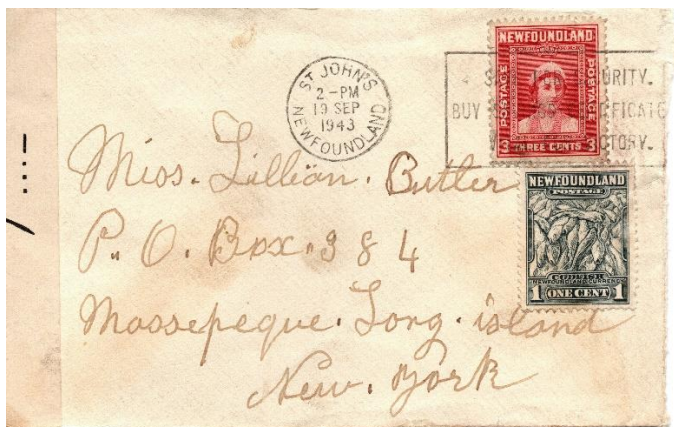 ST JOHN'S
2 - PM
19 SEP
1943
NEWFOUNDLAND
NEWFOUNDLAND
POSTAGE
POSTAGE
3 THREE CENTS 3
URITY.
BUY
TORY.
NEWFOUNDLAND
POSTAGE
CODFISH
NEWFOUNDLAND CURRENCY
1 ONE CENT 1
Miss. Lillian. Butler
P. O. Box. 384
Massepeque. Long. island
New. York